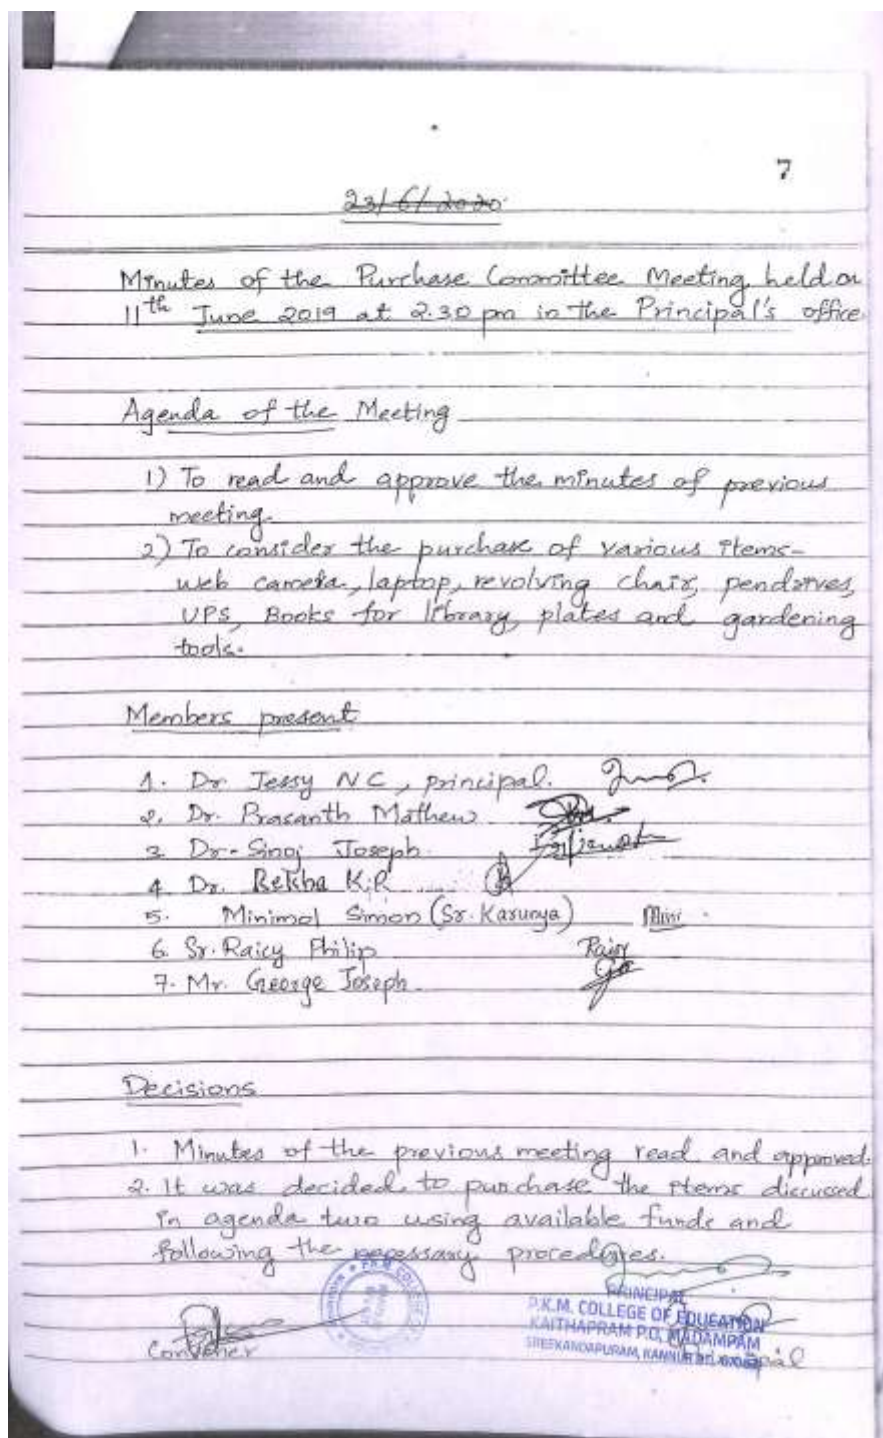 7
23/6/2020
Minutes of the Purchase Committee Meeting held on
11th June 2019 at 2.30 pm in the Principal's office
Agenda of the Meeting
1) To read and approve the minutes of previous
meeting.
2) To consider the purchase of various items-
web camera, laptop, revolving chair, pendrives,
UPS, Books for library, plates and gardening
tools.
Members present
1. Dr Jessy N C, principal.
2. Dr. Prasanth Mathew
3. Dr. Sinoj Joseph.
4. Dr. Rekha K.R
5. Minimol Simon (Sr. Karunya) Mini
6. Sr. Raicy Philip Raicy
7. Mr. George Joseph.
Decisions
1. Minutes of the previous meeting read and approved.
2. It was decided to purchase the items discussed
in agenda two using available funds and
following the necessary procedures.
PRINCIPAL
P.K.M. COLLEGE OF EDUCATION
KAITHAPRAM P.O, MADAMPAM
SREEKANDAPURAM, KANNUR
Convener Principal